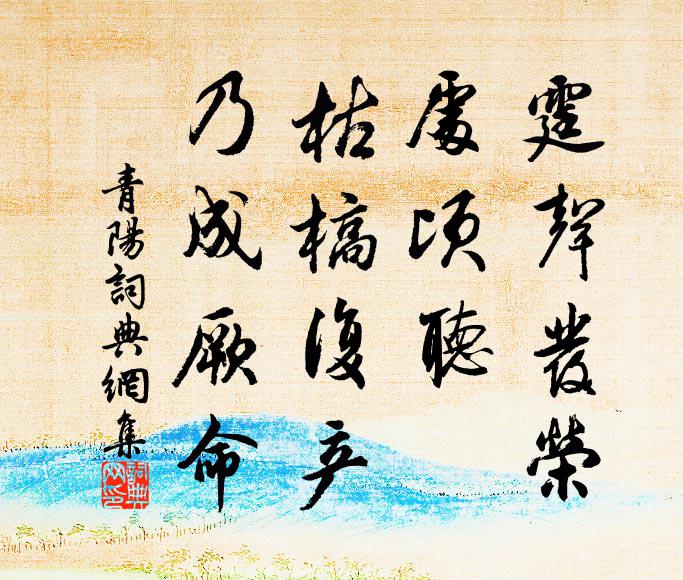 霆聲發榮
處頃聽
枯槁復产
乃成厥命
青陽詞典網集